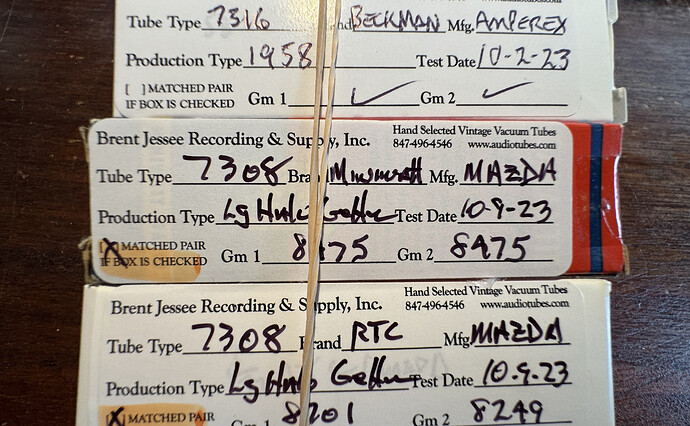 Tube Type 7316 BECKMAN Mfg. AMPEREX
Production Type 1958 Test Date 10-2-23
[ ] MATCHED PAIR
IF BOX IS CHECKED Gm 1 ✓ Gm 2 ✓
Brent Jessee Recording & Supply, Inc. Hand Selected Vintage Vacuum Tubes
847-496-4546 www.audiotubes.com
Tube Type 7308 Mfg. MAZDA
Production Type Lg Halo Getter Test Date 10-9-23
[X] MATCHED PAIR
IF BOX IS CHECKED Gm 1 8475 Gm 2 8475
Brent Jessee Recording & Supply, Inc. Hand Selected Vintage Vacuum Tubes
847-496-4546 www.audiotubes.com
Tube Type 7308 Brand RTC Mfg. MAZDA
Production Type Lg Halo Getter Test Date 10-9-23
[X] MATCHED PAIR Gm 1 8201 Gm 2 8249